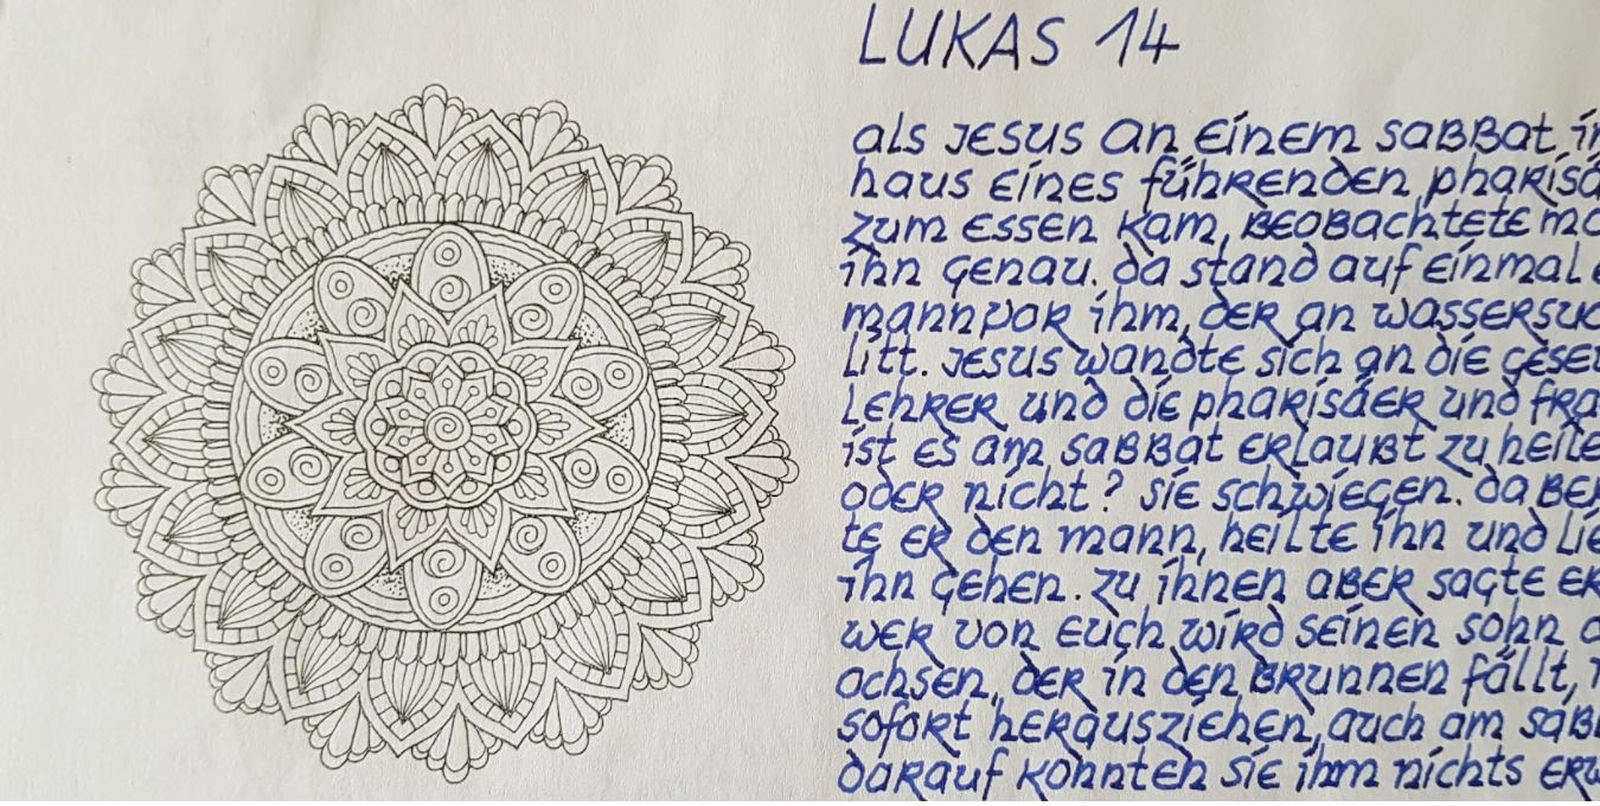 LUKAS 14
als Jesus an einem sabbat i
haus eines führenden pharisä
zum essen kam, beobachtete ma
ihn genau. da stand auf einmal e
mann vor ihm, der an wassersuc
litt. Jesus wandte sich an die geset
Lehrer und die pharisäer und fra
ist es am sabbat erlaubt zu heile
oder nicht? sie schwiegen. da ber
te er den mann, heilte ihn und lie
ihn gehen. zu ihnen aber sagte er
wer von euch wird seinen sohn o
ochsen, der in den brunnen fällt,
sofort herausziehen, auch am sabb
darauf konnten sie ihm nichts erw